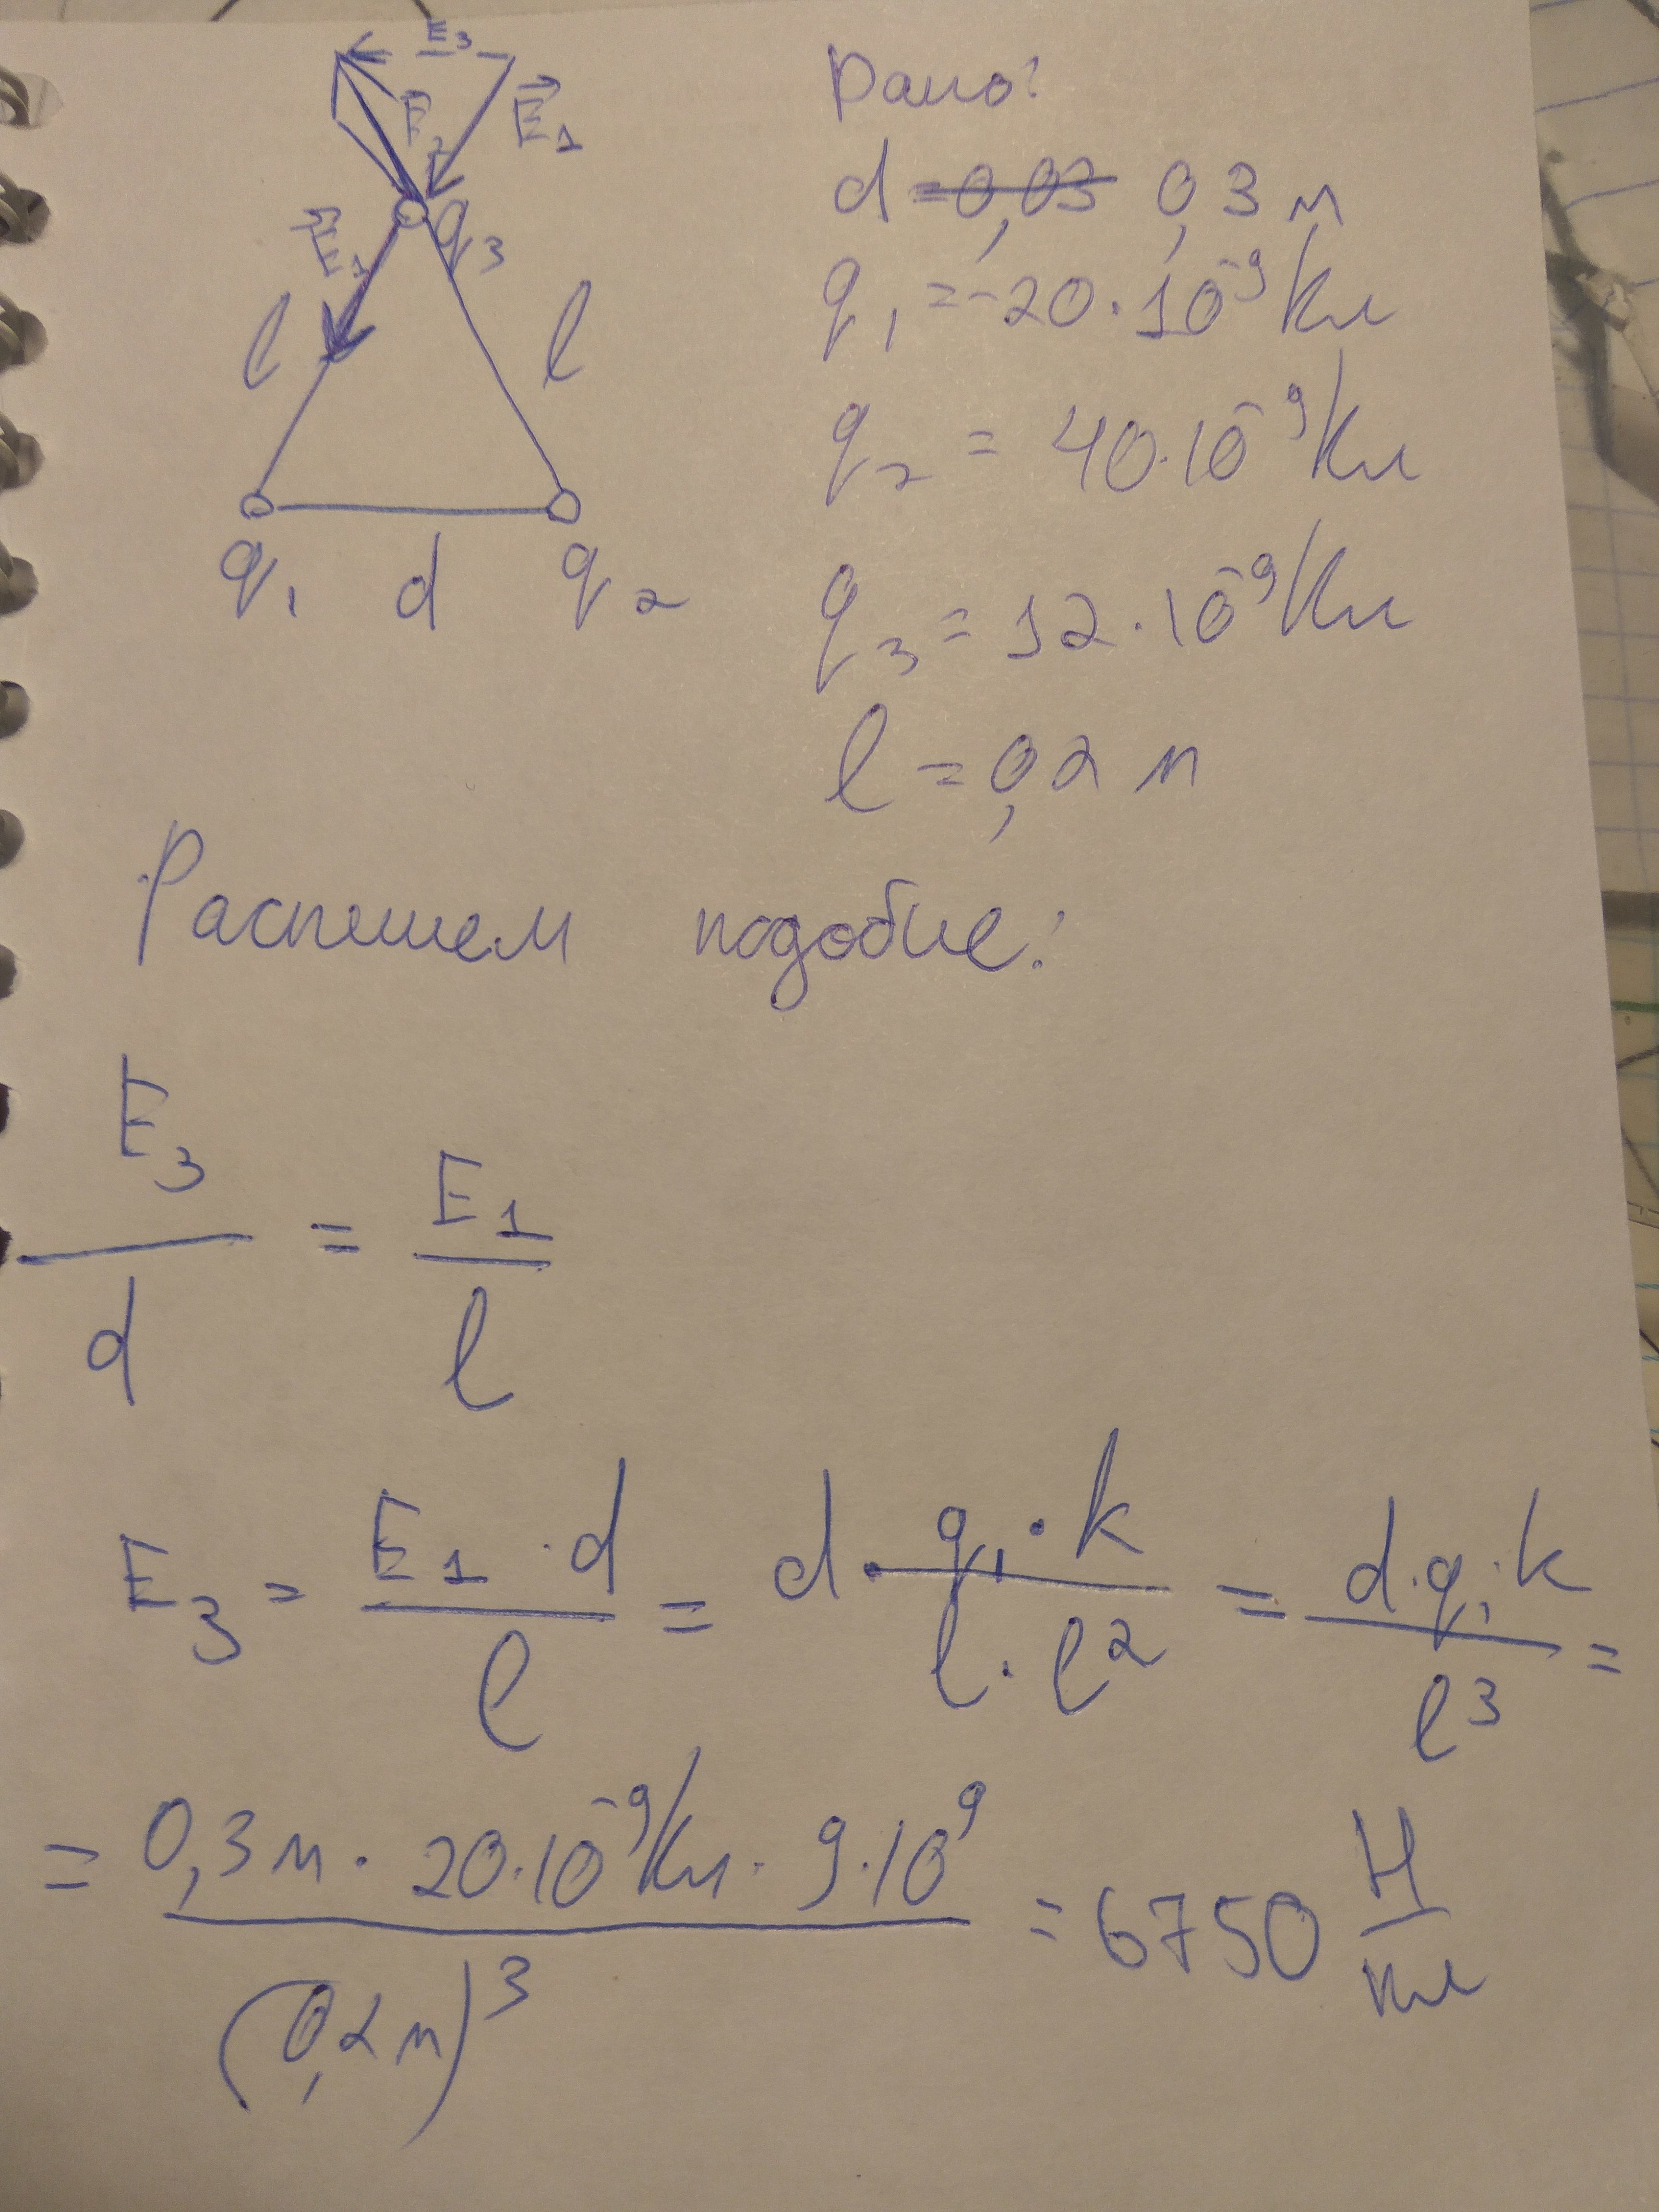 E₃
E⃗₁
E₂
q₃
E⃗₁
l l
q₁ d q₂
Дано:
d = 0,03 0,3 м
q₁ = -20·10⁻⁹ Кл
q₂ = 40·10⁻⁹ Кл
q₃ = 12·10⁻⁹ Кл
l = 0,2 м
Распишем подобие:
E₃/d = E₁/l
E₃ = E₁·d/l = d·q₁·k/(l·l²) = d·q₁·k/l³ =
= 0,3 м · 20·10⁻⁹ Кл · 9·10⁹/(0,2 м)³ = 6750 Н/Кл